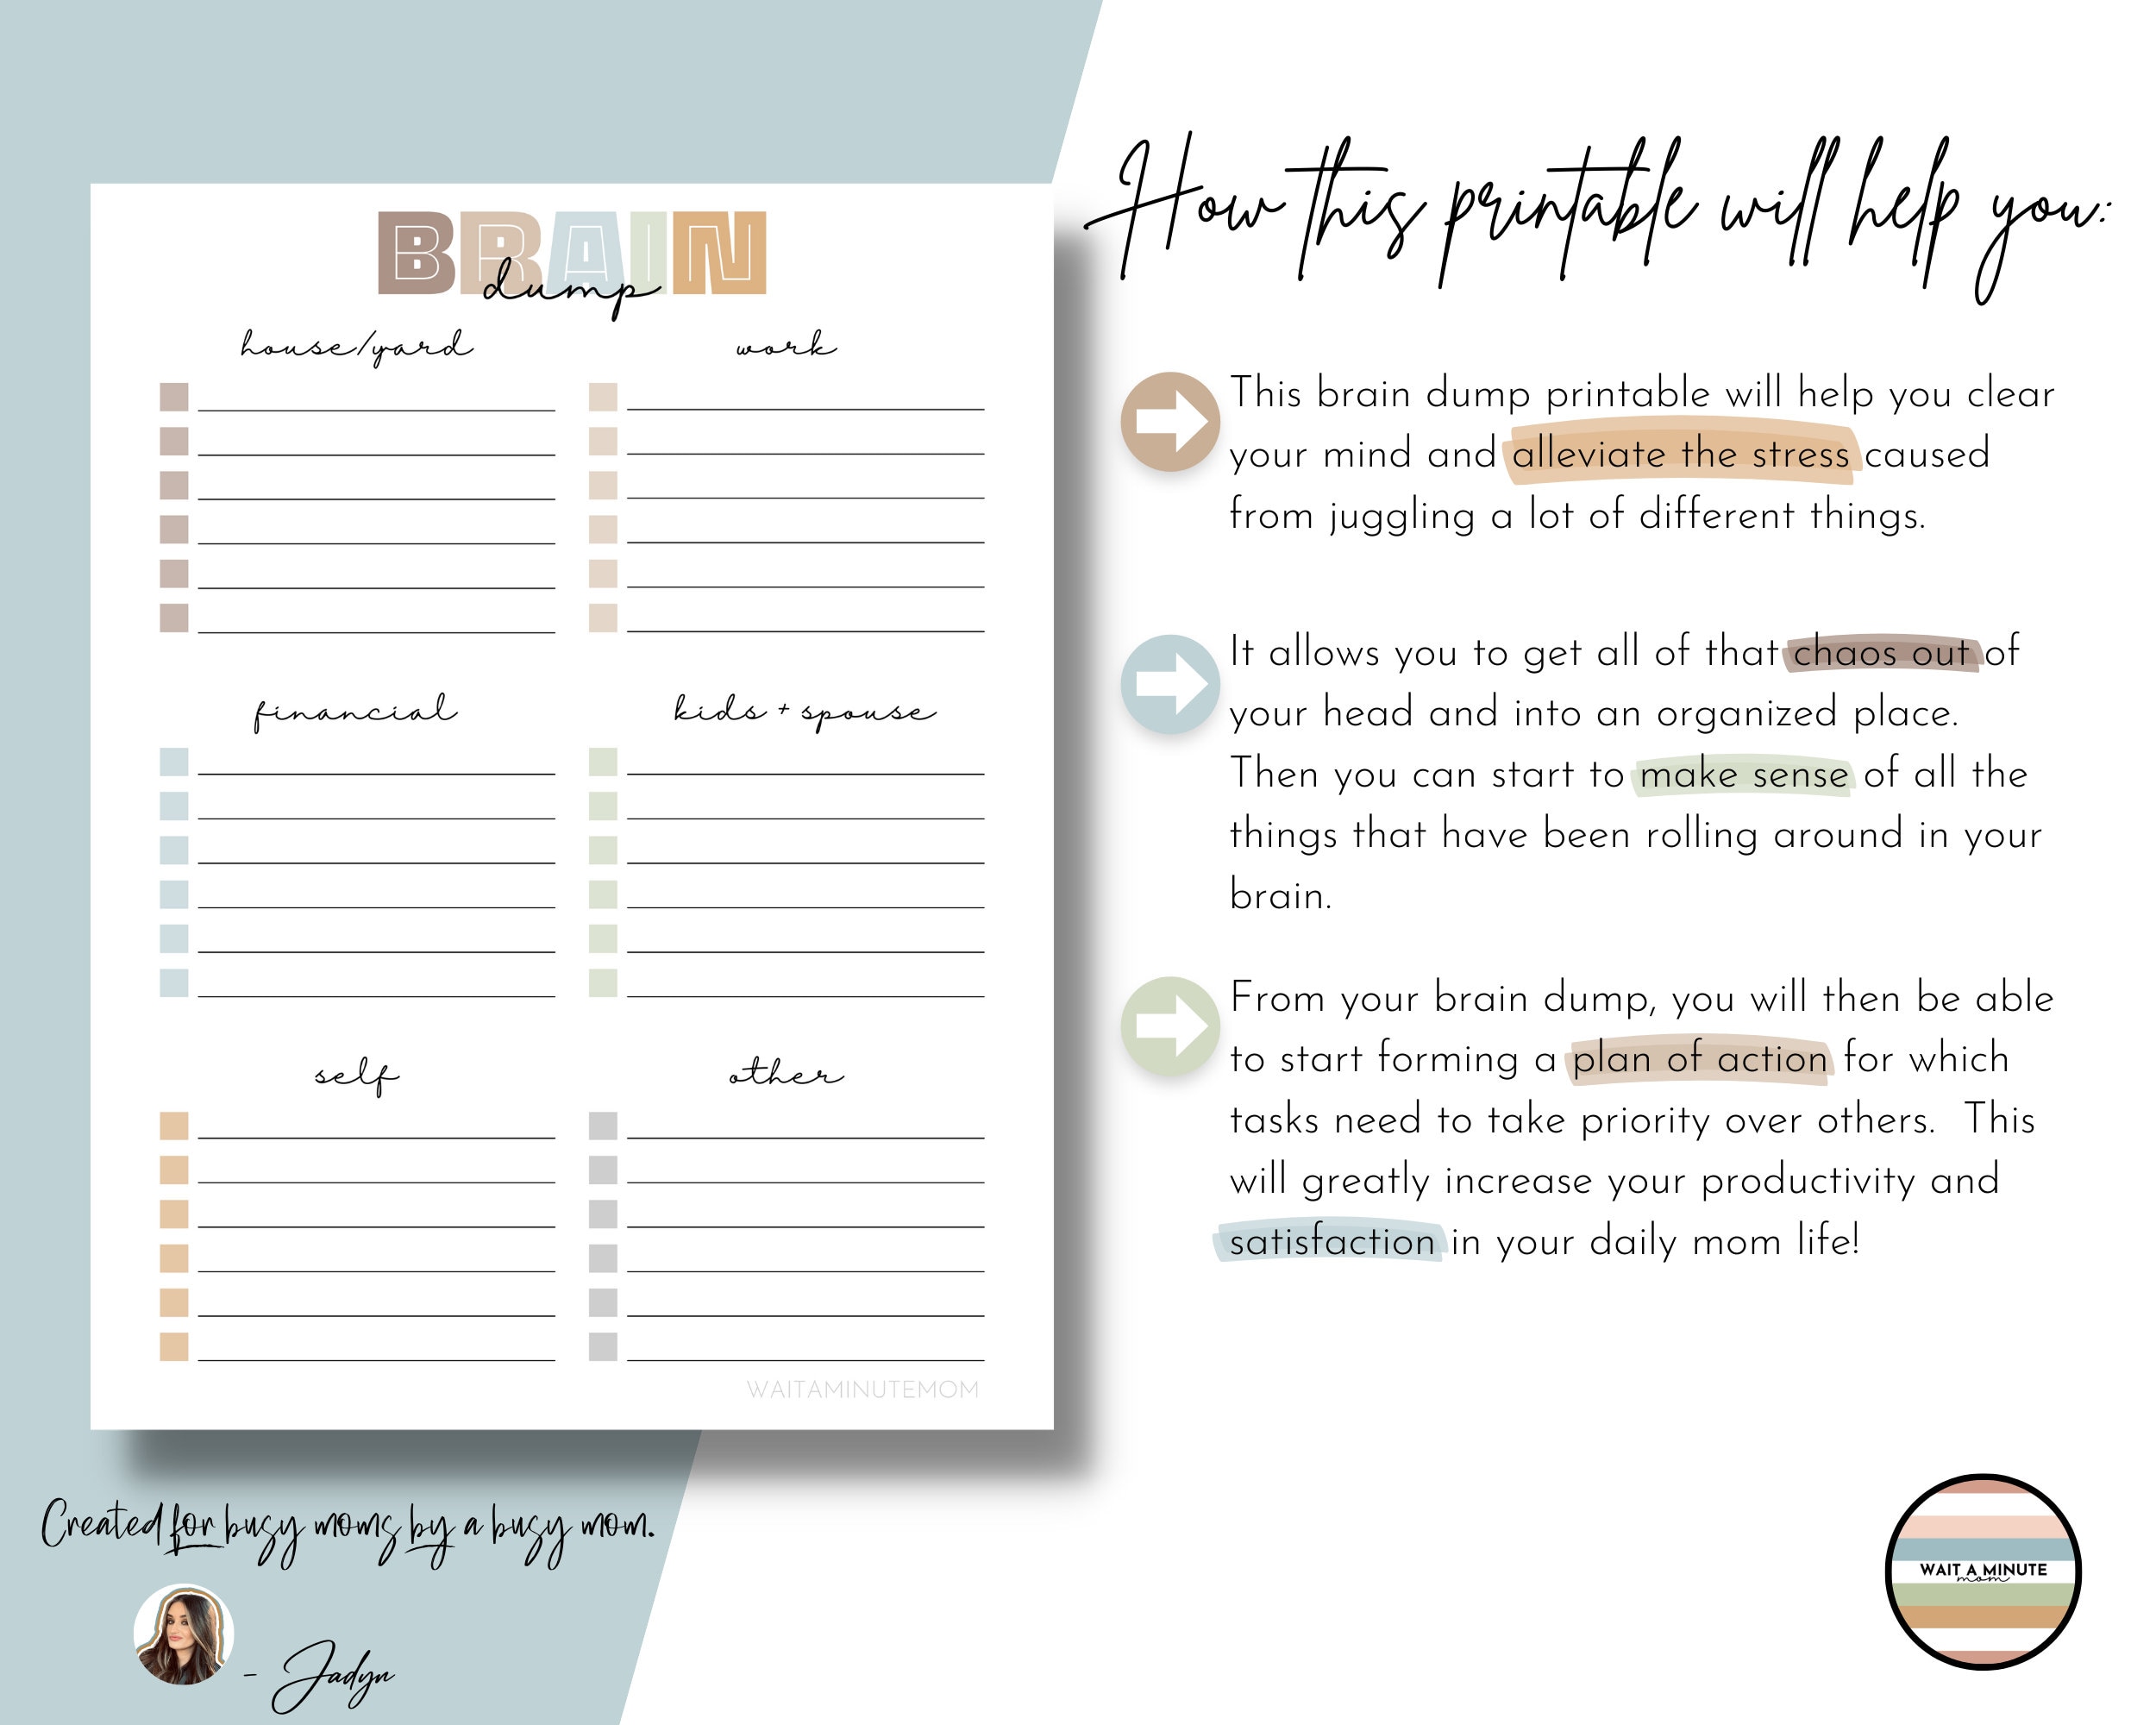 BRAIN
dump
house/yard
work
financial
kids + spouse
self
other
WAITAMINUTEMOM
How this printable will help you:
This brain dump printable will help you clear
your mind and alleviate the stress caused
from juggling a lot of different things.
It allows you to get all of that chaos out of
your head and into an organized place.
Then you can start to make sense of all the
things that have been rolling around in your
brain.
From your brain dump, you will then be able
to start forming a plan of action for which
tasks need to take priority over others. This
will greatly increase your productivity and
satisfaction in your daily mom life!
Created for busy moms by a busy mom.
- Jadyn
WAIT A MINUTE
mom